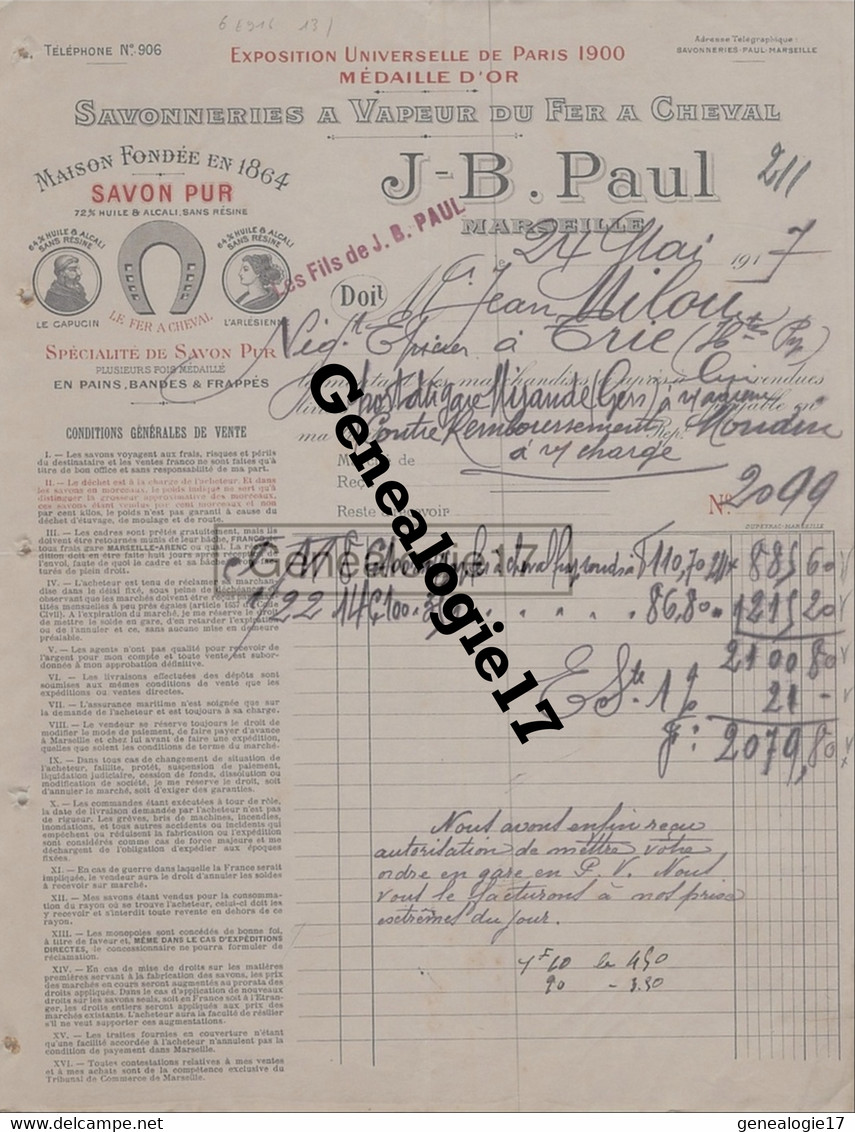 6 E916 13/
TÉLÉPHONE No. 906
EXPOSITION UNIVERSELLE DE PARIS 1900
MÉDAILLE D'OR
Adresse Télégraphique:
SAVONNERIES-PAUL-MARSEILLE
SAVONNERIES A VAPEUR DU FER A CHEVAL
MAISON FONDÉE EN 1864
SAVON PUR
72% HUILE & ALCALI, SANS RÉSINE
64% HUILE & ALCALI
SANS RÉSINE
64% HUILE & ALCALI
SANS RÉSINE
LE CAPUCIN
LE FER A CHEVAL
L'ARLÉSIENNE
SPÉCIALITÉ DE SAVON PUR
PLUSIEURS FOIS MÉDAILLÉ
EN PAINS, BANDES & FRAPPÉS
J-B. Paul
211
MARSEILLE
Les Fils de J. B. PAUL
le 24 Mai 1917
Doit Mr. Jean Milou
Négt Epicier à Trie (Htes Py)
vendues
post dt gare Mirande (Gers) à
ma Contre Remboursement Rep. Moudin
à charge
Reçu
Reste à recevoir
No 2099
SUPEYRAC-MARSEILLE
CONDITIONS GÉNÉRALES DE VENTE
I. — Les savons voyagent aux frais, risques et périls
du destinataire et les ventes franco ne sont faites qu'à
titre de bon office et sans responsabilité de ma part.
II. — Le déchet est à la charge de l'acheteur. Et dans
les savons en morceaux, le poids indiqué ne sert qu'à
distinguer la grosseur approximative des morceaux,
ces savons étant vendus par cent morceaux et non
par cent kilos, le poids n'est pas garanti à cause du
déchet d'étuvage, de moulage et de route.
III. — Les cadres sont prêtés gratuitement, mais ils
doivent être retournés munis de leur bâche, FRANCO
tous frais gare MARSEILLE-ARENC ou
dition doit en être faite huit jours après
l'envoi, faute de quoi le cadre et sa
turés de plein droit.
IV. — L'acheteur est tenu de réclamer
dise dans le délai fixé, sous peine de
observant que les marchés doivent être
tités mensuelles à peu près égales (article 1657 du Code
Civil). A l'expiration du marché, je me réserve le droit
de mettre le solde en gare, d'en retarder l'expédition
ou de l'annuler et ce, sans aucune mise en demeure
préalable.
V. — Les agents n'ont pas qualité pour recevoir de
l'argent pour mon compte et toute vente est subor-
donnée à mon approbation définitive.
VI. — Les livraisons effectuées des dépôts sont
soumises aux mêmes conditions de vente que les
expéditions ou ventes directes.
VII. — L'assurance maritime n'est soignée que sur
la demande de l'acheteur et est toujours à sa charge.
VIII. — Le vendeur se réserve toujours le droit de
modifier le mode de paiement, de faire payer d'avance
à Marseille et chez lui avant de faire une expédition,
quelles que soient les conditions de terme du marché.
IX. — Dans tous cas de changement de situation de
l'acheteur, faillite, protêt, suspension de paiement,
liquidation judiciaire, cession de fonds, dissolution ou
modification de société, je me réserve le droit, soit
d'annuler le marché, soit d'exiger des garanties.
X. — Les commandes étant exécutées à tour de rôle,
la date de livraison demandée par l'acheteur n'est pas
de rigueur. Les grèves, bris de machines, incendies,
inondations, et tous autres accidents ou incidents qui
empêchent ou réduisent la fabrication ou l'expédition
sont considérés comme cas de force majeure et me
déchargent de l'obligation d'expédier aux époques
fixées.
XI. — En cas de guerre dans laquelle la France serait
impliquée, le vendeur aura le droit d'annuler les soldes
à recevoir sur marché.
XII. — Mes savons étant vendus pour la consomma-
tion du rayon où se trouve l'acheteur, celui-ci doit les
y recevoir et s'interdit toute revente en dehors de ce
rayon.
XIII. — Les monopoles sont concédés de bonne foi,
à titre de faveur et, MÊME DANS LE CAS D'EXPÉDITIONS
DIRECTES, le concessionnaire ne pourra formuler de
réclamation.
XIV. — En cas de mise de droits sur les matières
premières servant à la fabrication des savons, les prix
des marchés en cours seront augmentés au prorata des
droits appliqués. Dans le cas d'application de nouveaux
droits sur les savons seuls, soit en France soit à l'Etran-
ger, les droits entiers seront appliqués aux prix des
marchés existants. L'acheteur aura la faculté de résilier
s'il ne veut supporter ces augmentations.
XV. — Les traites fournies en couverture n'étant
qu'une facilité accordée à l'acheteur n'annulent pas la
condition de payement dans Marseille.
XVI. — Toutes contestations relatives à mes ventes
et à mes achats sont de la compétence exclusive du
Tribunal de Commerce de Marseille.
8 110,70 885 60
22 14 86,80 1215 20
2100 80
E Ste 1% 21 -
F: 2079,80
Nous avons enfin reçu
autorisation de mettre votre
ordre en gare en P. V. Nous
vous le facturons à nos prix
extrêmes du jour.
60 le 450
90 - 3.50
Genealogie17
Genealogie17
delcampe.net
genealogie17